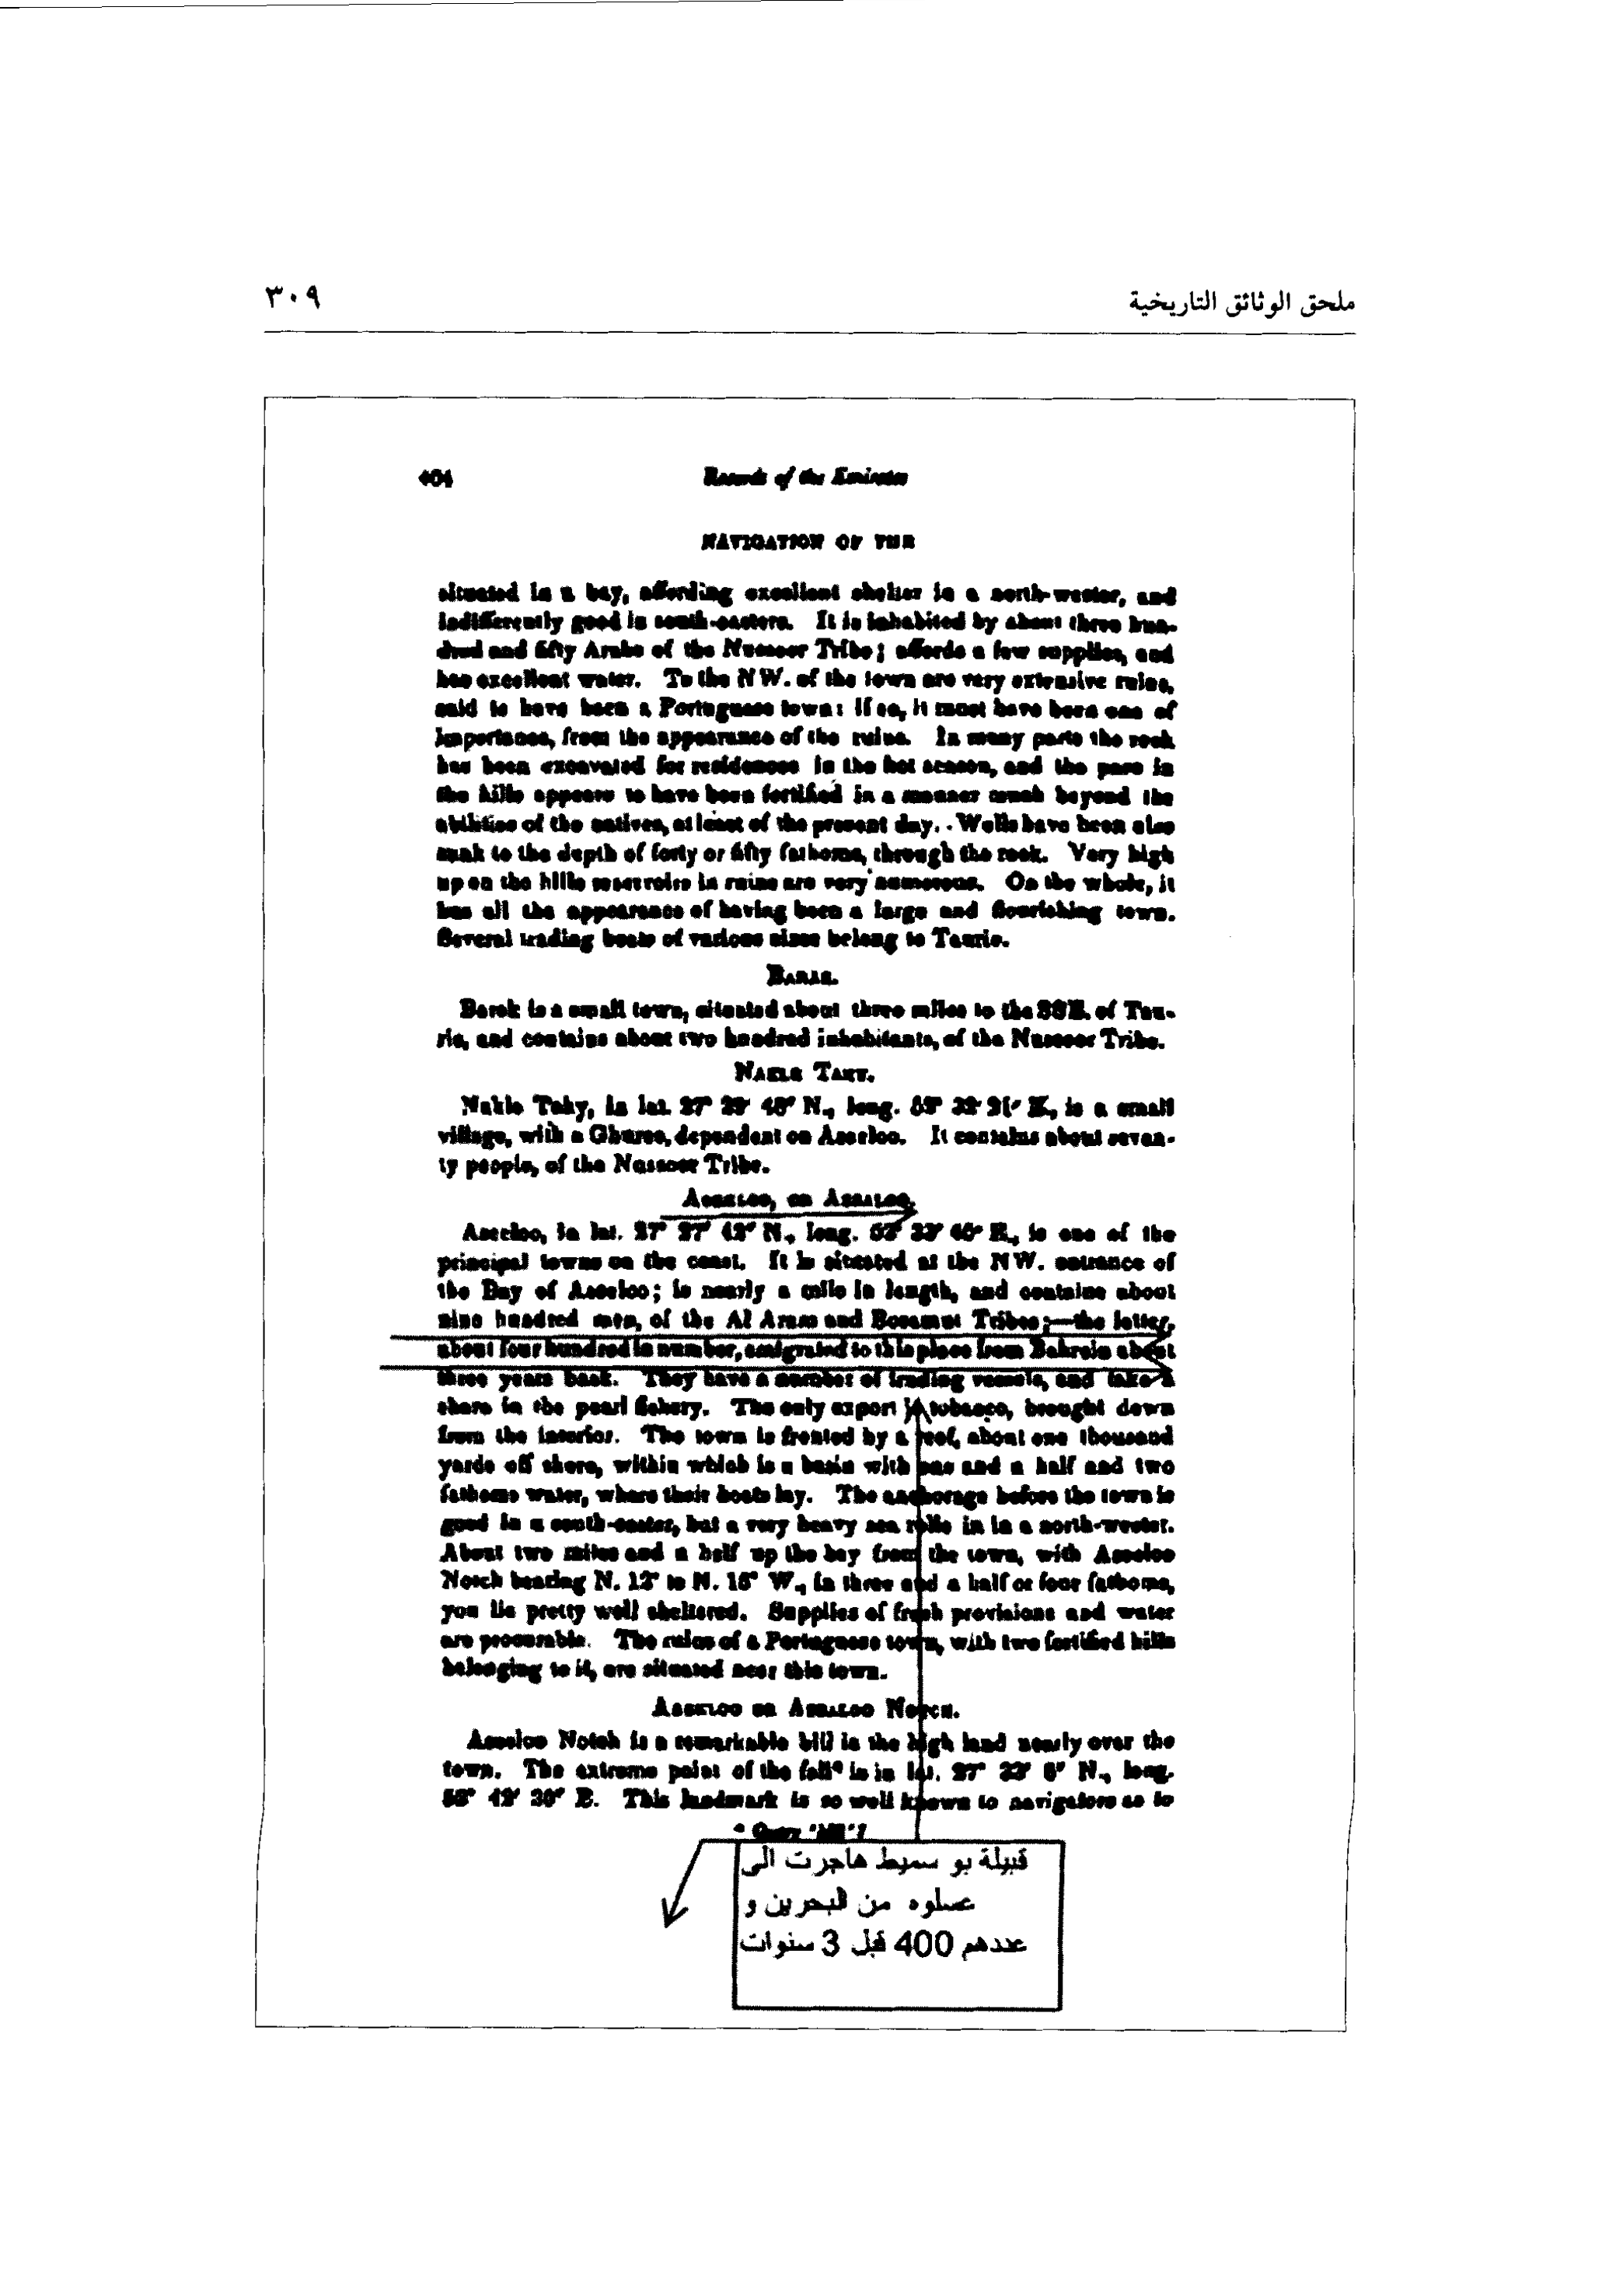 ملحق الوثائق التاريخية
٣٠٩
404
Records of the Emirates
NAVIGATION OF THE
situated in a bay, affording excellent shelter in a north-wester, and
indifferently good in south-easters. It is inhabited by about three hun-
dred and fifty Arabs of the Nussoor Tribe; affords a few supplies, and
has excellent water. To the NW. of the town are very extensive ruins,
said to have been a Portuguese town: if so, it must have been one of
importance, from the appearance of the ruins. In many parts the rock
has been excavated for residences in the hot season, and the pass in
the hills appears to have been fortified in a manner much beyond the
abilities of the natives, at least of the present day. Wells have been also
sunk to the depth of forty or fifty fathoms, through the rock. Very high
up on the hills reservoirs in ruins are very numerous. On the whole, it
has all the appearance of having been a large and flourishing town.
Several trading boats of various sizes belong to Taurie.
BARAK.
Barak is a small town, situated about three miles to the SSE. of Tau-
rie, and contains about two hundred inhabitants, of the Nussoor Tribe.
Nakle Taky, in lat. 27° N., long. E., is a small
village, with a Ghuree, dependent on Asseloo. It contains about seven-
ty people, of the Nussoor Tribe.
ASSELOO, OR ASSALOO.
Asseloo, in lat. 27° 27' N., long. E., is one of the
principal towns on the coast. It is situated at the NW. entrance of
the Bay of Asseloo; is nearly a mile in length, and contains about
nine hundred men, of the Al Aram and Bosamut Tribes;—the latter,
about four hundred in number, emigrated to this place from Bahrein about
three years back. They have a number of trading vessels, and take a
share in the pearl fishery. The only export is tobacco, brought down
from the interior. The town is fronted by a reef, about one thousand
yards off shore, within which is a basin with one and a half and two
fathoms water, where their boats lay. The anchorage before the town is
good in a south-easter, but a very heavy sea rolls in in a north-wester.
About two miles and a half up the bay from the town, with Asseloo
Notch bearing N. 12° to N. 15° W., in three and a half or four fathoms,
you lie pretty well sheltered. Supplies of fresh provisions and water
are procurable. The ruins of a Portuguese town, with two fortified hills
belonging to it, are situated near this town.
ASSELOO OR ASSALOO NOTCH.
Asseloo Notch is a remarkable hill in the high land nearly over the
town. The extreme point of the fall* is in lat. 27° N., long.
E. This landmark is so well known to navigators as to
* Query 'hill'?
قبيلة بو سميط هاجرت الى
عسلوه من البحرين و
عددهم 400 قبل 3 سنوات